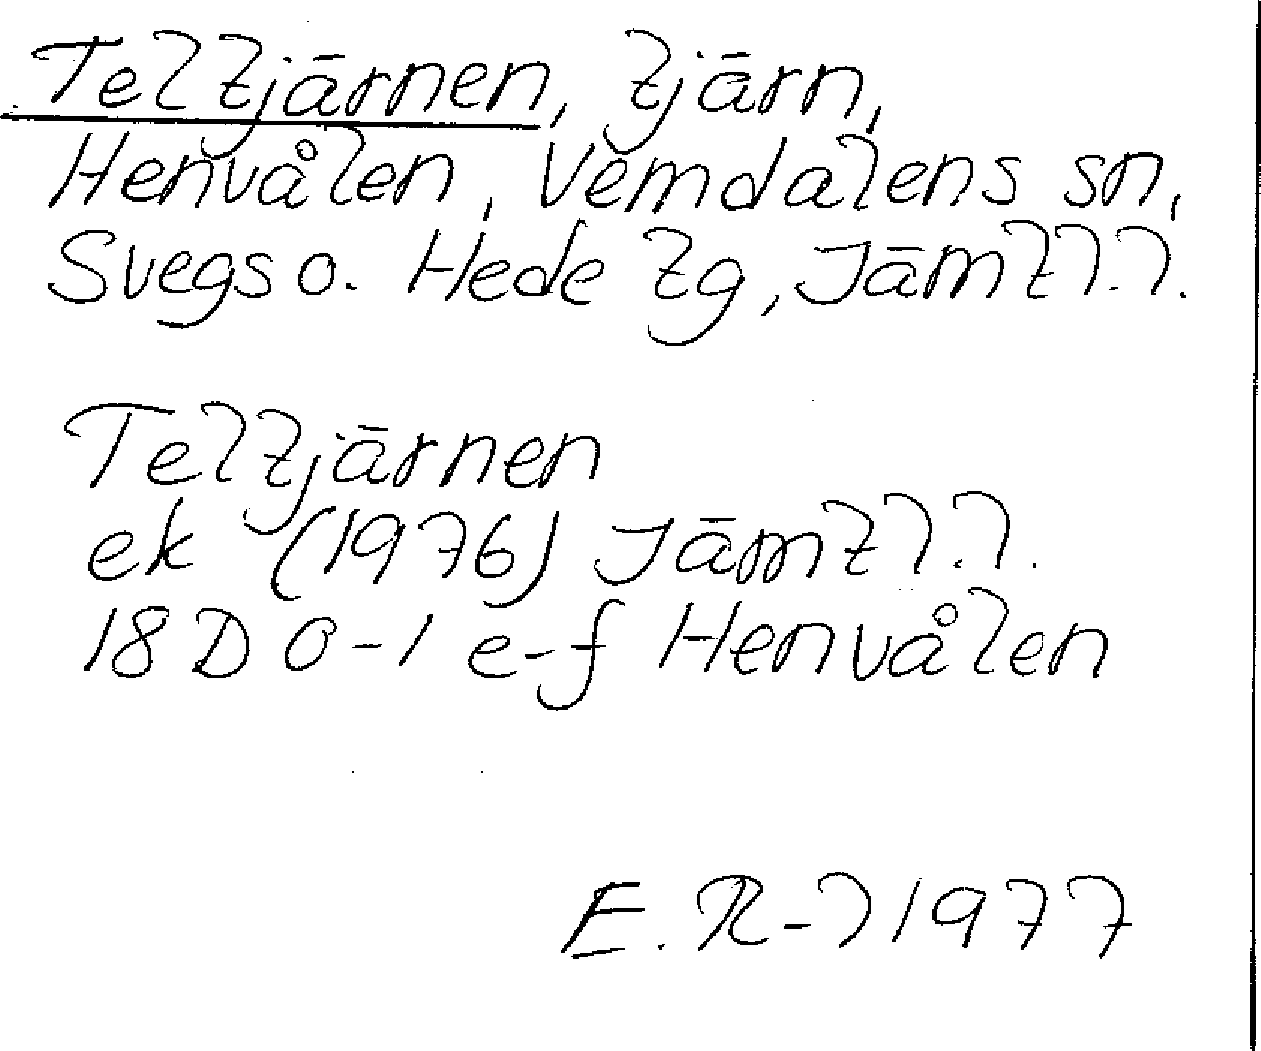 Teltjärnen, tjärn,
Henvålen, Vemdalens sn,
Svegs o. Hede tg, Jämtl.l.
Teltjärnen
ek (1976) Jämtl.l.
18 D 0-1 e-f Henvålen
E. R-l 1977